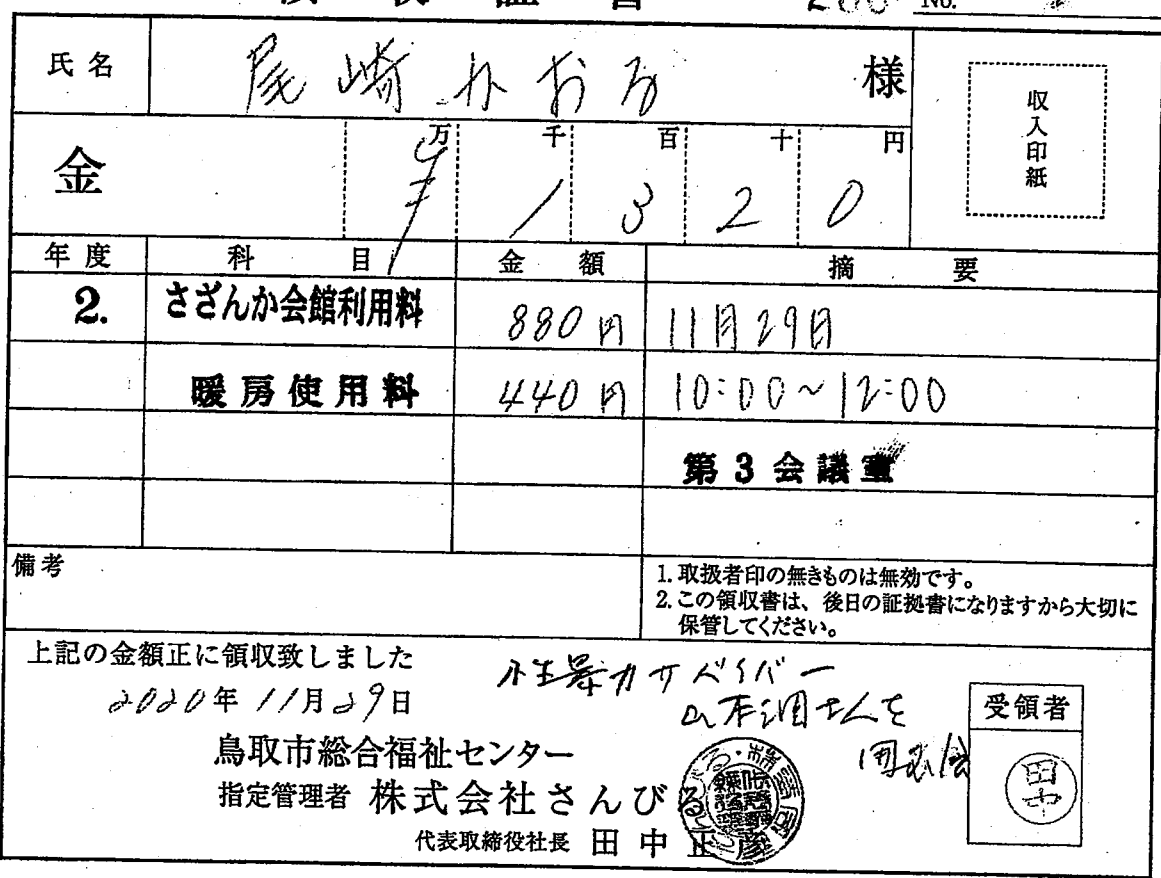 領収証書
No.
氏名 尾崎かおる 様
収入印紙
金 万 千 百 十 円
¥1320
年度 科目 金額 摘要
2. さざんか会館利用料 880円 11月29日
暖房使用料 440円 10:00~12:00
第3会議室
備考
1. 取扱者印の無きものは無効です。
2. この領収書は、後日の証拠書になりますから大切に
保管してください。
上記の金額正に領収致しました
性暴力サバイバー
2020年11月29日
山本潤さんを
受領者
鳥取市総合福祉センター
囲む会
田中
指定管理者 株式会社さんびる
代表取締役社長 田中正彦